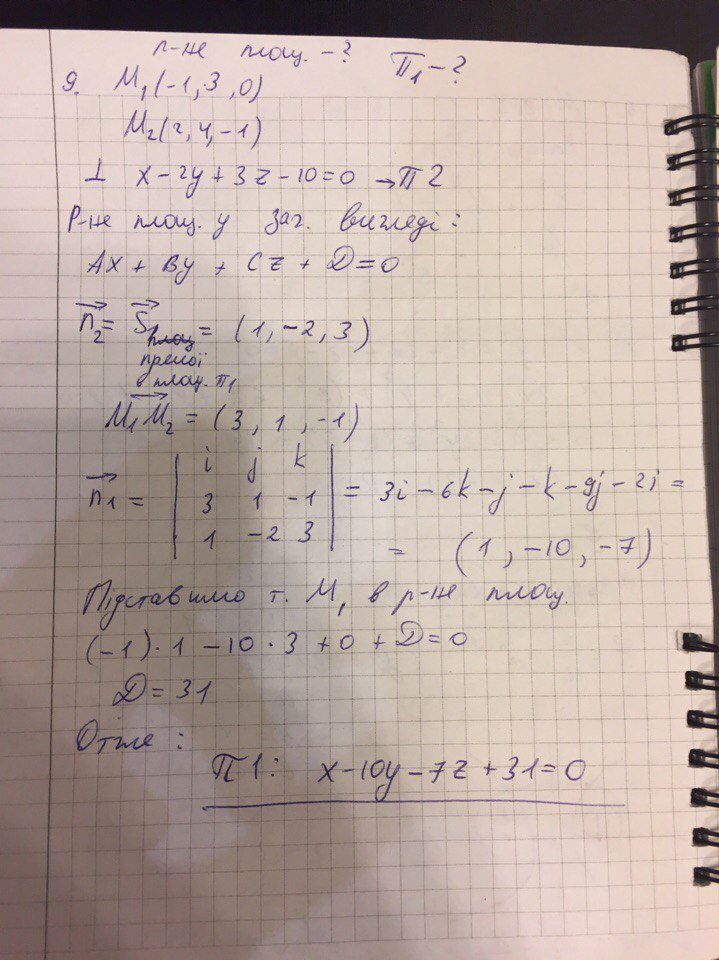 р-не площ. - ? П₁ - ?
9. M₁(-1, 3, 0)
M₂(2, 4, -1)
⊥ x - 2y + 3z - 10 = 0 → П2
Р-не площ. у заг. вигледі:
Ax + By + Cz + D = 0
n₂ = S = (1, -2, 3)
прямої
в площ. П1
M₁M₂ = (3, 1, -1)
i j k
n₁ = | 3 1 -1 | = 3i - 6k - j - k - 9j - 2i =
1 -2 3
= (1, -10, -7)
Підставимо т. M₁ в р-не площ.
(-1)·1 - 10·3 + 0 + D = 0
D = 31
Отже:
П1: x - 10y - 7z + 31 = 0